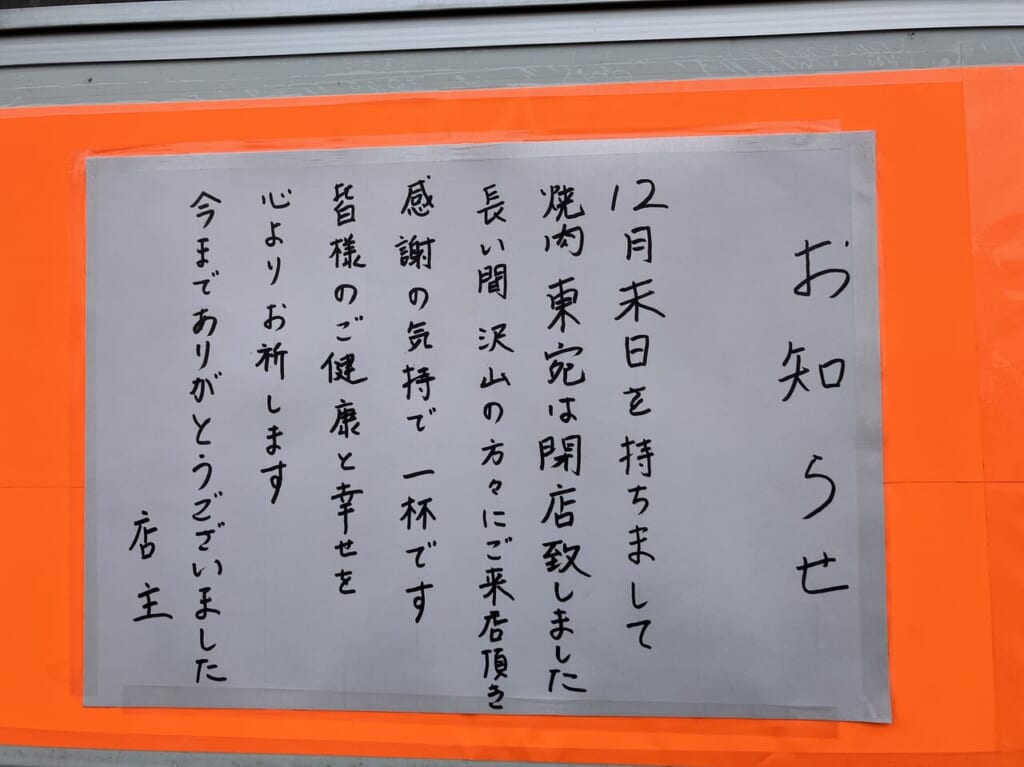 お知らせ
12月末日を持ちまして
焼肉 東宛は閉店致しました
長い間 沢山の方々にご来店頂き
感謝の気持で一杯です
皆様のご健康と幸せを
心よりお祈します
今までありがとうございました
店主